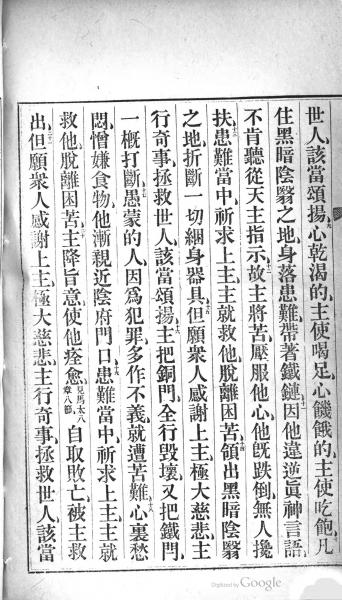 世人該當頌揚心乾渴的主使喝足心饑餓的主使吃飽凡
住黑暗陰翳之地身落患難帶著鐵鏈因他違逆眞神言語
不肯聽從天主指示故主將苦壓服他心他旣跌倒無人攙
扶患難當中祈求上主主就救他脫離困苦領出黑暗陰翳
之地折斷一切綑身器具但願衆人感謝上主極大慈悲主
行奇事拯救世人該當頌揚主把銅門全行毀壞又把鐵門
一概打斷愚蒙的人因爲犯罪多作不義就遭苦難心裏愁
悶憎嫌食物他漸親近陰府門口患難當中祈求上主主就
救他脫離困苦主降旨意使他痊愈見馬太八章八節自取敗亡被主救
出但願衆人感謝上主極大慈悲主行奇事拯救世人該當
Digitized by Google